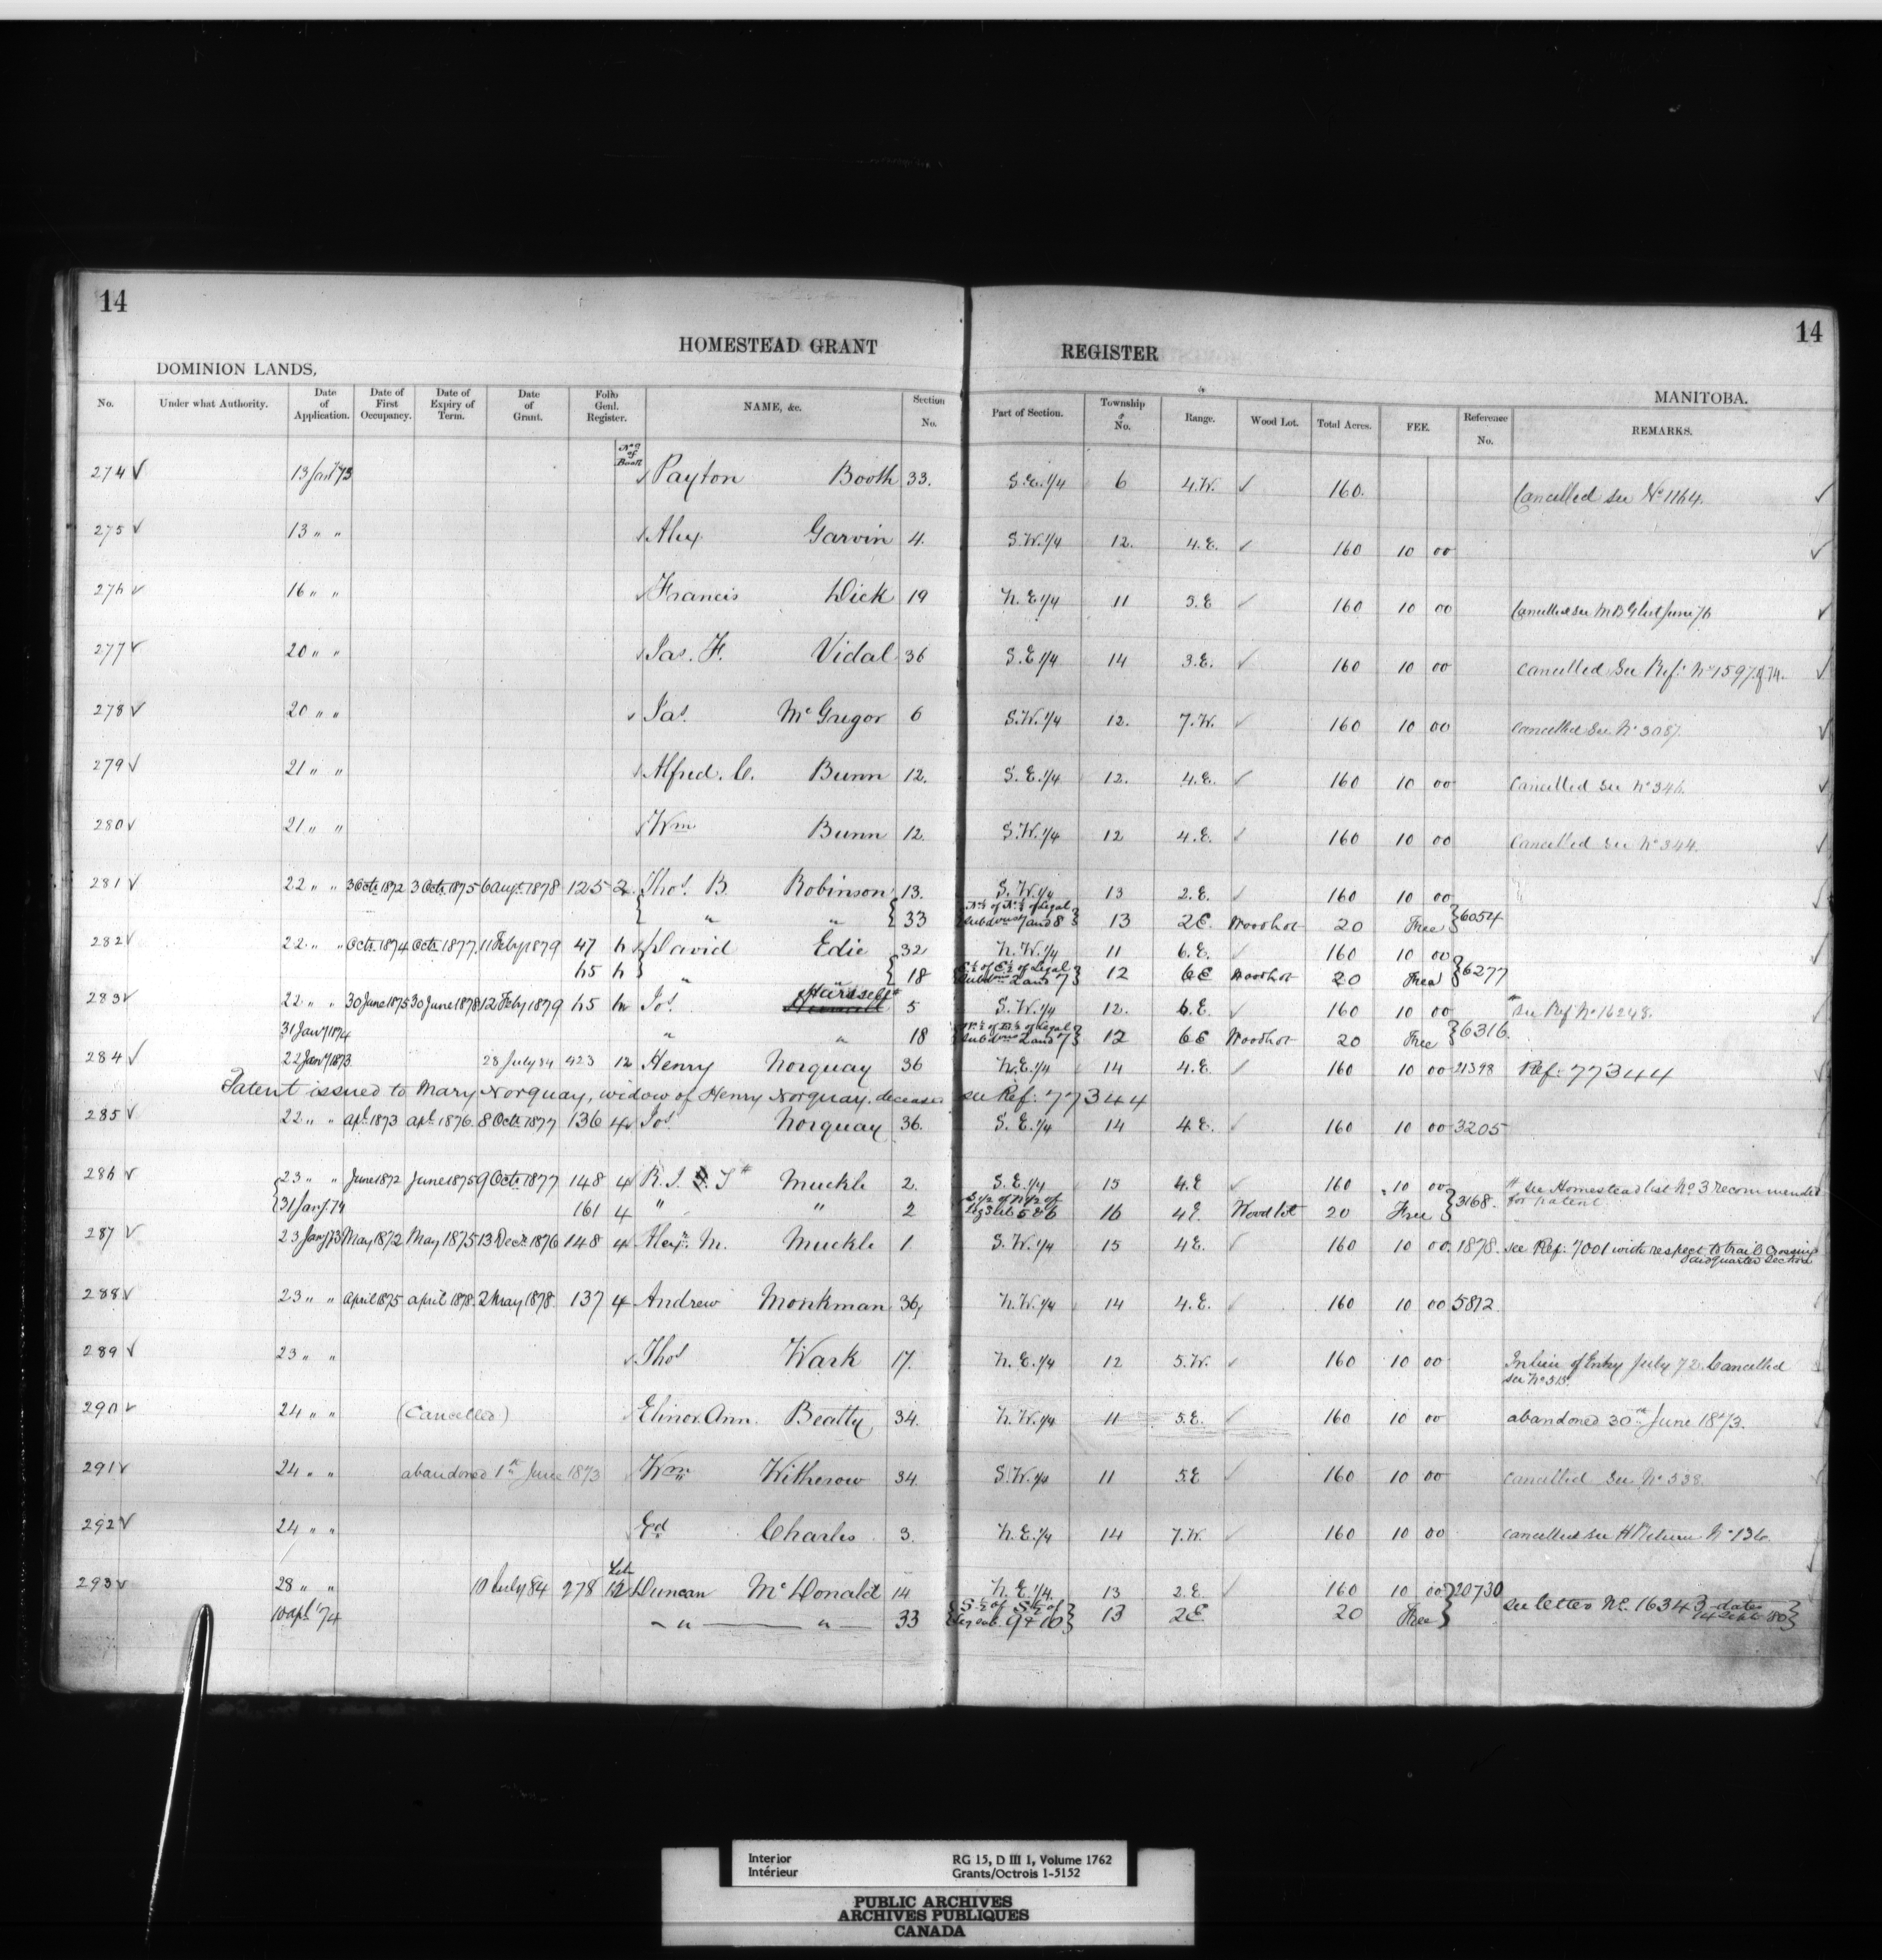 14
14
HOMESTEAD GRANT REGISTER
DOMINION LANDS,
MANITOBA.
No. Under what Authority. Date of Application. Date of First Occupancy. Date of Expiry of Term. Date of Grant. Folio Genl. Register. NAME, &c. Section No. Part of Section. Township No. Range. Wood Lot. Total Acres. FEE. Reference No. REMARKS.
No of Book
274 ✓ 13 Jany 73 Payton Booth 33. S.E. 1/4 6 4.W. ✓ 160. Cancelled see No 1164. ✓
275 ✓ 13 " " Alex Garvin 4. S.W. 1/4 12. 4.E. ✓ 160 10 00 ✓
276 ✓ 16 " " Francis Dick 19 N.E 1/4 11 3.E ✓ 160 10 00 Cancelled see M B G list June ✓
277 ✓ 20 " " Jas. F. Vidal 36 S.E 1/4 14 3.E. ✓ 160 10 00 cancelled See Ref: No 1597 ✓
278 ✓ 20 " " Jas. McGregor 6 S.W. 1/4 12. 7.W. ✓ 160 10 00 cancelled See No 3087. ✓
279 ✓ 21 " " Alfred. C. Bunn 12. S.E. 1/4 12. 4.E. ✓ 160 10 00 Cancelled see No 346. ✓
280 ✓ 21 " " Wm Bunn 12. S.W. 1/4 12 4.E. ✓ 160 10 00 Cancelled see No 344. ✓
281 ✓ 22 " " 3 Octr 1872 3 Octr 1875 6 Augt 1878 125 2 Thos. B. Robinson 13. S.W. 1/4 13 2.E. ✓ 160 10 00
" " 33 N½ of N½ of Legal Subdivns 7 and 8 13 2E Woodlot 20 Free 6054
282 ✓ 22 " " Octr. 1874 Octr. 1877. 11 Feby 1879 47 6 David Edie 32 N.W. 1/4 11 6.E. ✓ 160 10 00
65 6 " " 18 E½ of E½ of Legal Subdvns 2 and 7 12 6E Woodlot 20 Free 6277
283 ✓ 22 " " 30 June 1875 30 June 1878 12 Feby 1879 65 6 Jos. 5 S.W. 1/4 12. 6.E. ✓ 160 10 00 # see Ref No 16248.
31 Jany 1874 " " 18 Legal Subdvns 2 and 7 12 6E Woodlot 20 Free 6316.
284 ✓ 22 Jany 1873 28 July 84 423 12 Henry Norquay 36 N.E. 1/4 14 4.E. ✓ 160 10 00 21398 Ref: 77344
Patent issued to Mary Norquay, widow of Henry Norquay. deceased see Ref: 77344
285 ✓ 22 " " apl. 1873 apl. 1876. 8 Octr. 1877 136 4 Jos. Norquay 36. S.E. 1/4 14 4E. ✓ 160 10 00 3205
286 ✓ 23 " " June 1872 June 1875 9 Octr. 1877 148 4 R. J. T # Muckle 2. S.E. 1/4 15 4.E ✓ 160 10 00 # see Homestead list No. 3 recommended
31 Jany. 74 161 4 " " 2 S 1/2 of N 1/2 of Leg Subs 5 & 6 16 4E. Woodlot 20 Free 3168. for patent.
287 ✓ 23 Jany 73 May 1872 May 1875 13 Decr. 1876 148 4 Alexr. M. Muckle 1. S.W. 1/4 15 4E. ✓ 160 10 00. 1878. see Ref: 7001 with respect to trail crossing
said quarter section
288 ✓ 23 " " April 1875 april 1878. 2 May 1878. 137 4 Andrew Monkman 36. N.W. 1/4 14 4.E. ✓ 160 10 00 5812.
289 ✓ 23 " " Thos Wark 17. N.E. 1/4 12 5.W. ✓ 160 10 00 In lieu of Entry July 72. Cancelled
see No 313.
290 ✓ 24 " " (Cancelled) Elinor Ann. Beatty 34. N.W. 1/4 11 5.E. ✓ 160 10 00 abandoned 30th June 1873.
291 ✓ 24 " " abandoned 1st June 1873 Wm Witherow 34. S.W. 1/4 11 5.E ✓ 160 10 00 cancelled See No 538.
292 ✓ 24 " " Ed Charles 3. N.E. 1/4 14 7.W. ✓ 160 10 00 cancelled see H Return No 136.
293 ✓ 28 " " 10 July 84 278 Lib 12 Duncan McDonald 14 N.E. 1/4. 13 2.E. ✓ 160 10 00 20730
10 apl. '74 " " 33 S½ of S½ of Leg sub. 9 & 10 13 2E. 20 Free see letter No. 16343 dated
14 Sept. '80
Interior RG 15, D III 1, Volume 1762
Intérieur Grants/Octrois 1-5152
PUBLIC ARCHIVES
ARCHIVES PUBLIQUES
CANADA